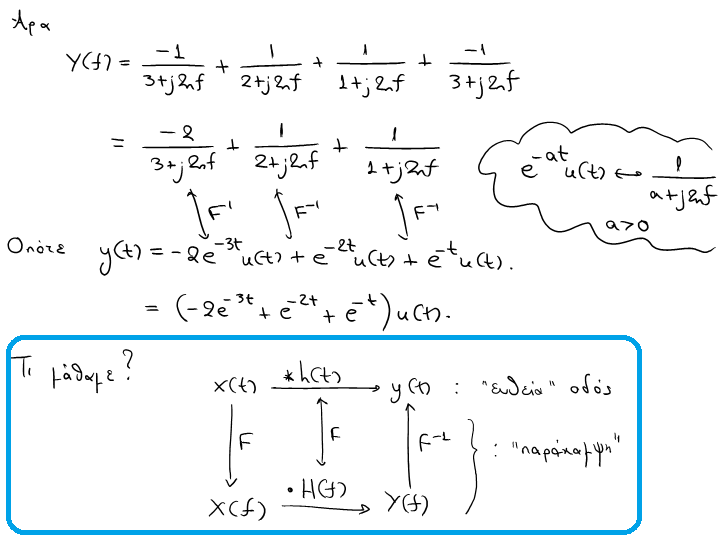 Άρα
Y(f) = \frac{-1}{3+j2πf} + \frac{1}{2+j2πf} + \frac{1}{1+j2πf} + \frac{-1}{3+j2πf}
= \frac{-2}{3+j2πf} + \frac{1}{2+j2πf} + \frac{1}{1+j2πf}
e^{-at}u(t) ↔ \frac{1}{a+j2πf}
a>0
F^{-1} F^{-1} F^{-1}
Οπότε y(t) = -2e^{-3t}u(t) + e^{-2t}u(t) + e^{-t}u(t).
= (-2e^{-3t} + e^{-2t} + e^{-t})u(t).
Τι μάθαμε?
x(t) *h(t) → y(t) : "ευθεία" οδός
F F F^{-1} } : "παράκαμψη"
X(f) ·H(f) → Y(f)